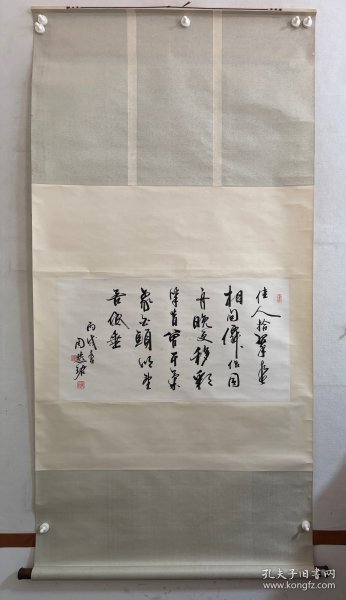 佳人拾翠春
相问仙侣同
舟晚更移彩
笔昔曾干气
象白头吟望
苦低垂
丙戌春
孔夫子旧书网
www.kongfz.com